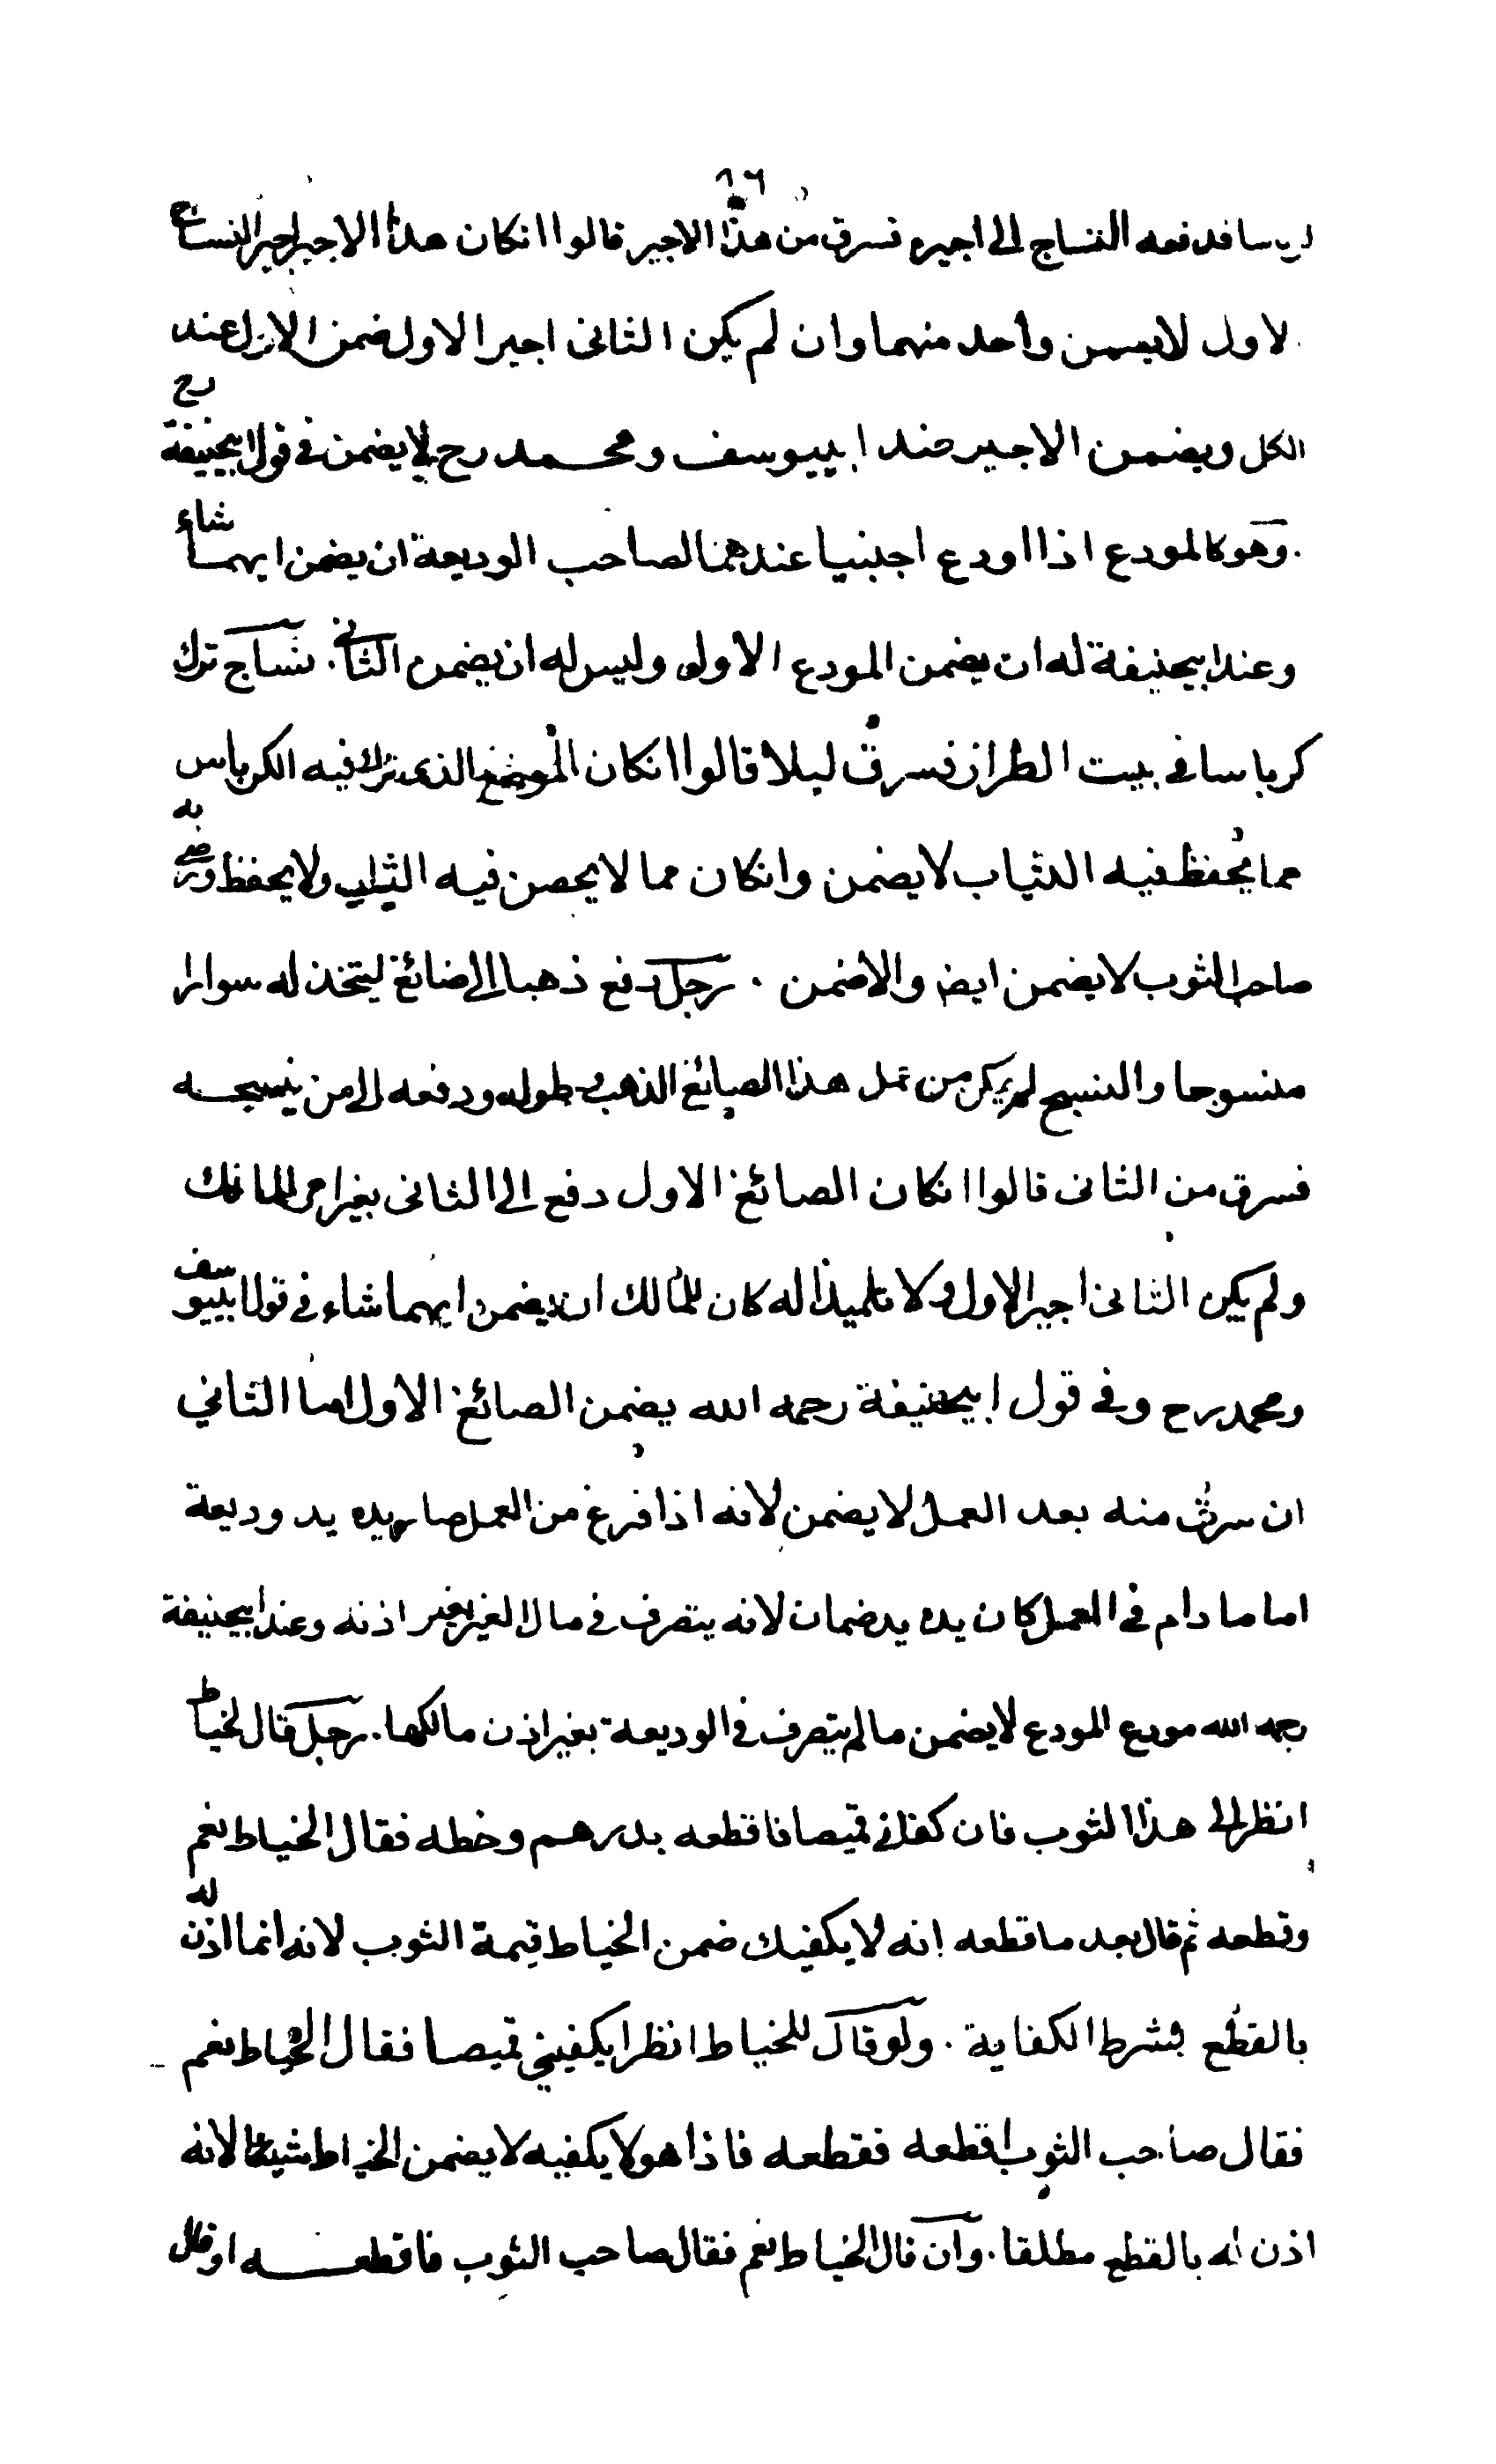 ١٦
كرباسا فدفعه النساج الى اجيره فسرق من هذا الاجير قالوا انكان هذا الاجير اجير النساج
الاول لا يضمن واحد منهما وان لم يكن الثانى اجير الاول ضمن الاول عند
الكل ويضمن الاجير عند ابييوسف ومحمد رح لا يضمن فى قول ابيحنيفة رح
وهو كالمودع اذا اودع اجنبيا عندهما لصاحب الوديعة ان يضمن ايهما شاء
وعند ابيحنيفة له ان يضمن المودع الاول وليس له ان يضمن الثانى . نساج ترك
كرباسا فى بيت الطراز فسرق ليلا قالوا انكان الموضع الذى ترك فيه الكرباس
مما يحفظ فيه الثياب لا يضمن وانكان مما لا يحصن فيه الثياب ولا يحفظ ورضى به
صاحب الثوب لا يضمن ايض والا ضمن . رجل دفع ذهبا الى صائغ ليتخذ له سوارا
منسوجا والنسج لم يكن من عمل هذا الصائغ الذهب وطوله ودفعه الى من ينسجه
فسرق من الثانى قالوا انكان الصائغ الاول دفع الى الثانى بغير امر المالك
ولم يكن الثانى اجير الاول ولا تلميذا له كان للمالك ان يضمن ايهما شاء فى قول ابييوسف
ومحمد رح وفى قول ابيحنيفة رحمه الله يضمن الصائغ الاول اما الثاني
ان سرق منه بعد العمل لا يضمن لانه اذا فرغ من العمل صار يده يد وديعة
اما ما دام فى العمل كان يده يد ضمان لانه يتصرف فى مال الغير بغير اذنه وعند ابيحنيفة
رحمه الله مودع المودع لا يضمن ما لم يتصرف فى الوديعة بغير اذن مالكها . رجل قال لخياط
انظر الى هذا الثوب فان كفانى قميصا فاقطعه بدرهم وخطه فقال الخياط نعم
وقطعه ثم قال بعد ما قطعه انه لا يكفيك ضمن الخياط قيمة الثوب لانه انما اذن له
بالقطع بشرط الكفاية . ولو قال للخياط انظر ايكفيني قميصا فقال الخياط نعم
فقال صاحب الثوب اقطعه فقطعه فاذا هو لا يكفيه لا يضمن الخياط شيئا لانه
اذن له بالقطع مطلقا . وان قال الخياط نعم فقال صاحب الثوب فاقطعه او قال